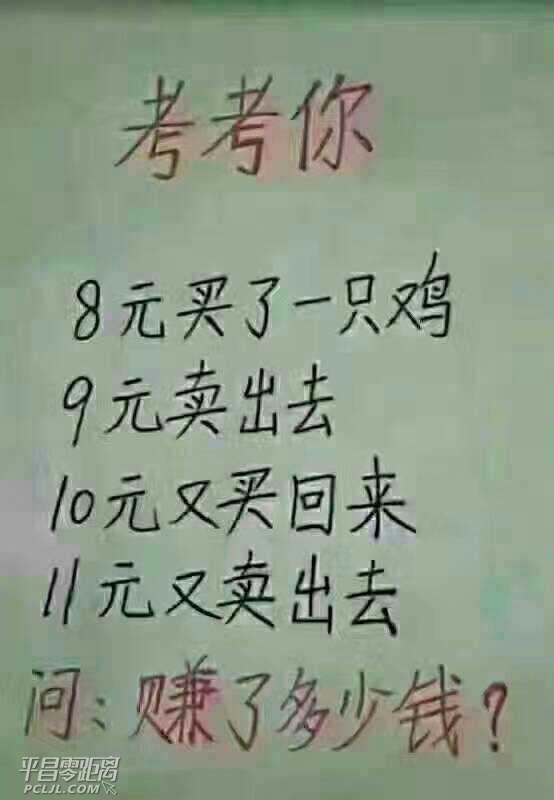 考考你
8元买了一只鸡
9元卖出去
10元又买回来
11元又卖出去
问：赚了多少钱？
平昌零距离
PCLJL.COM